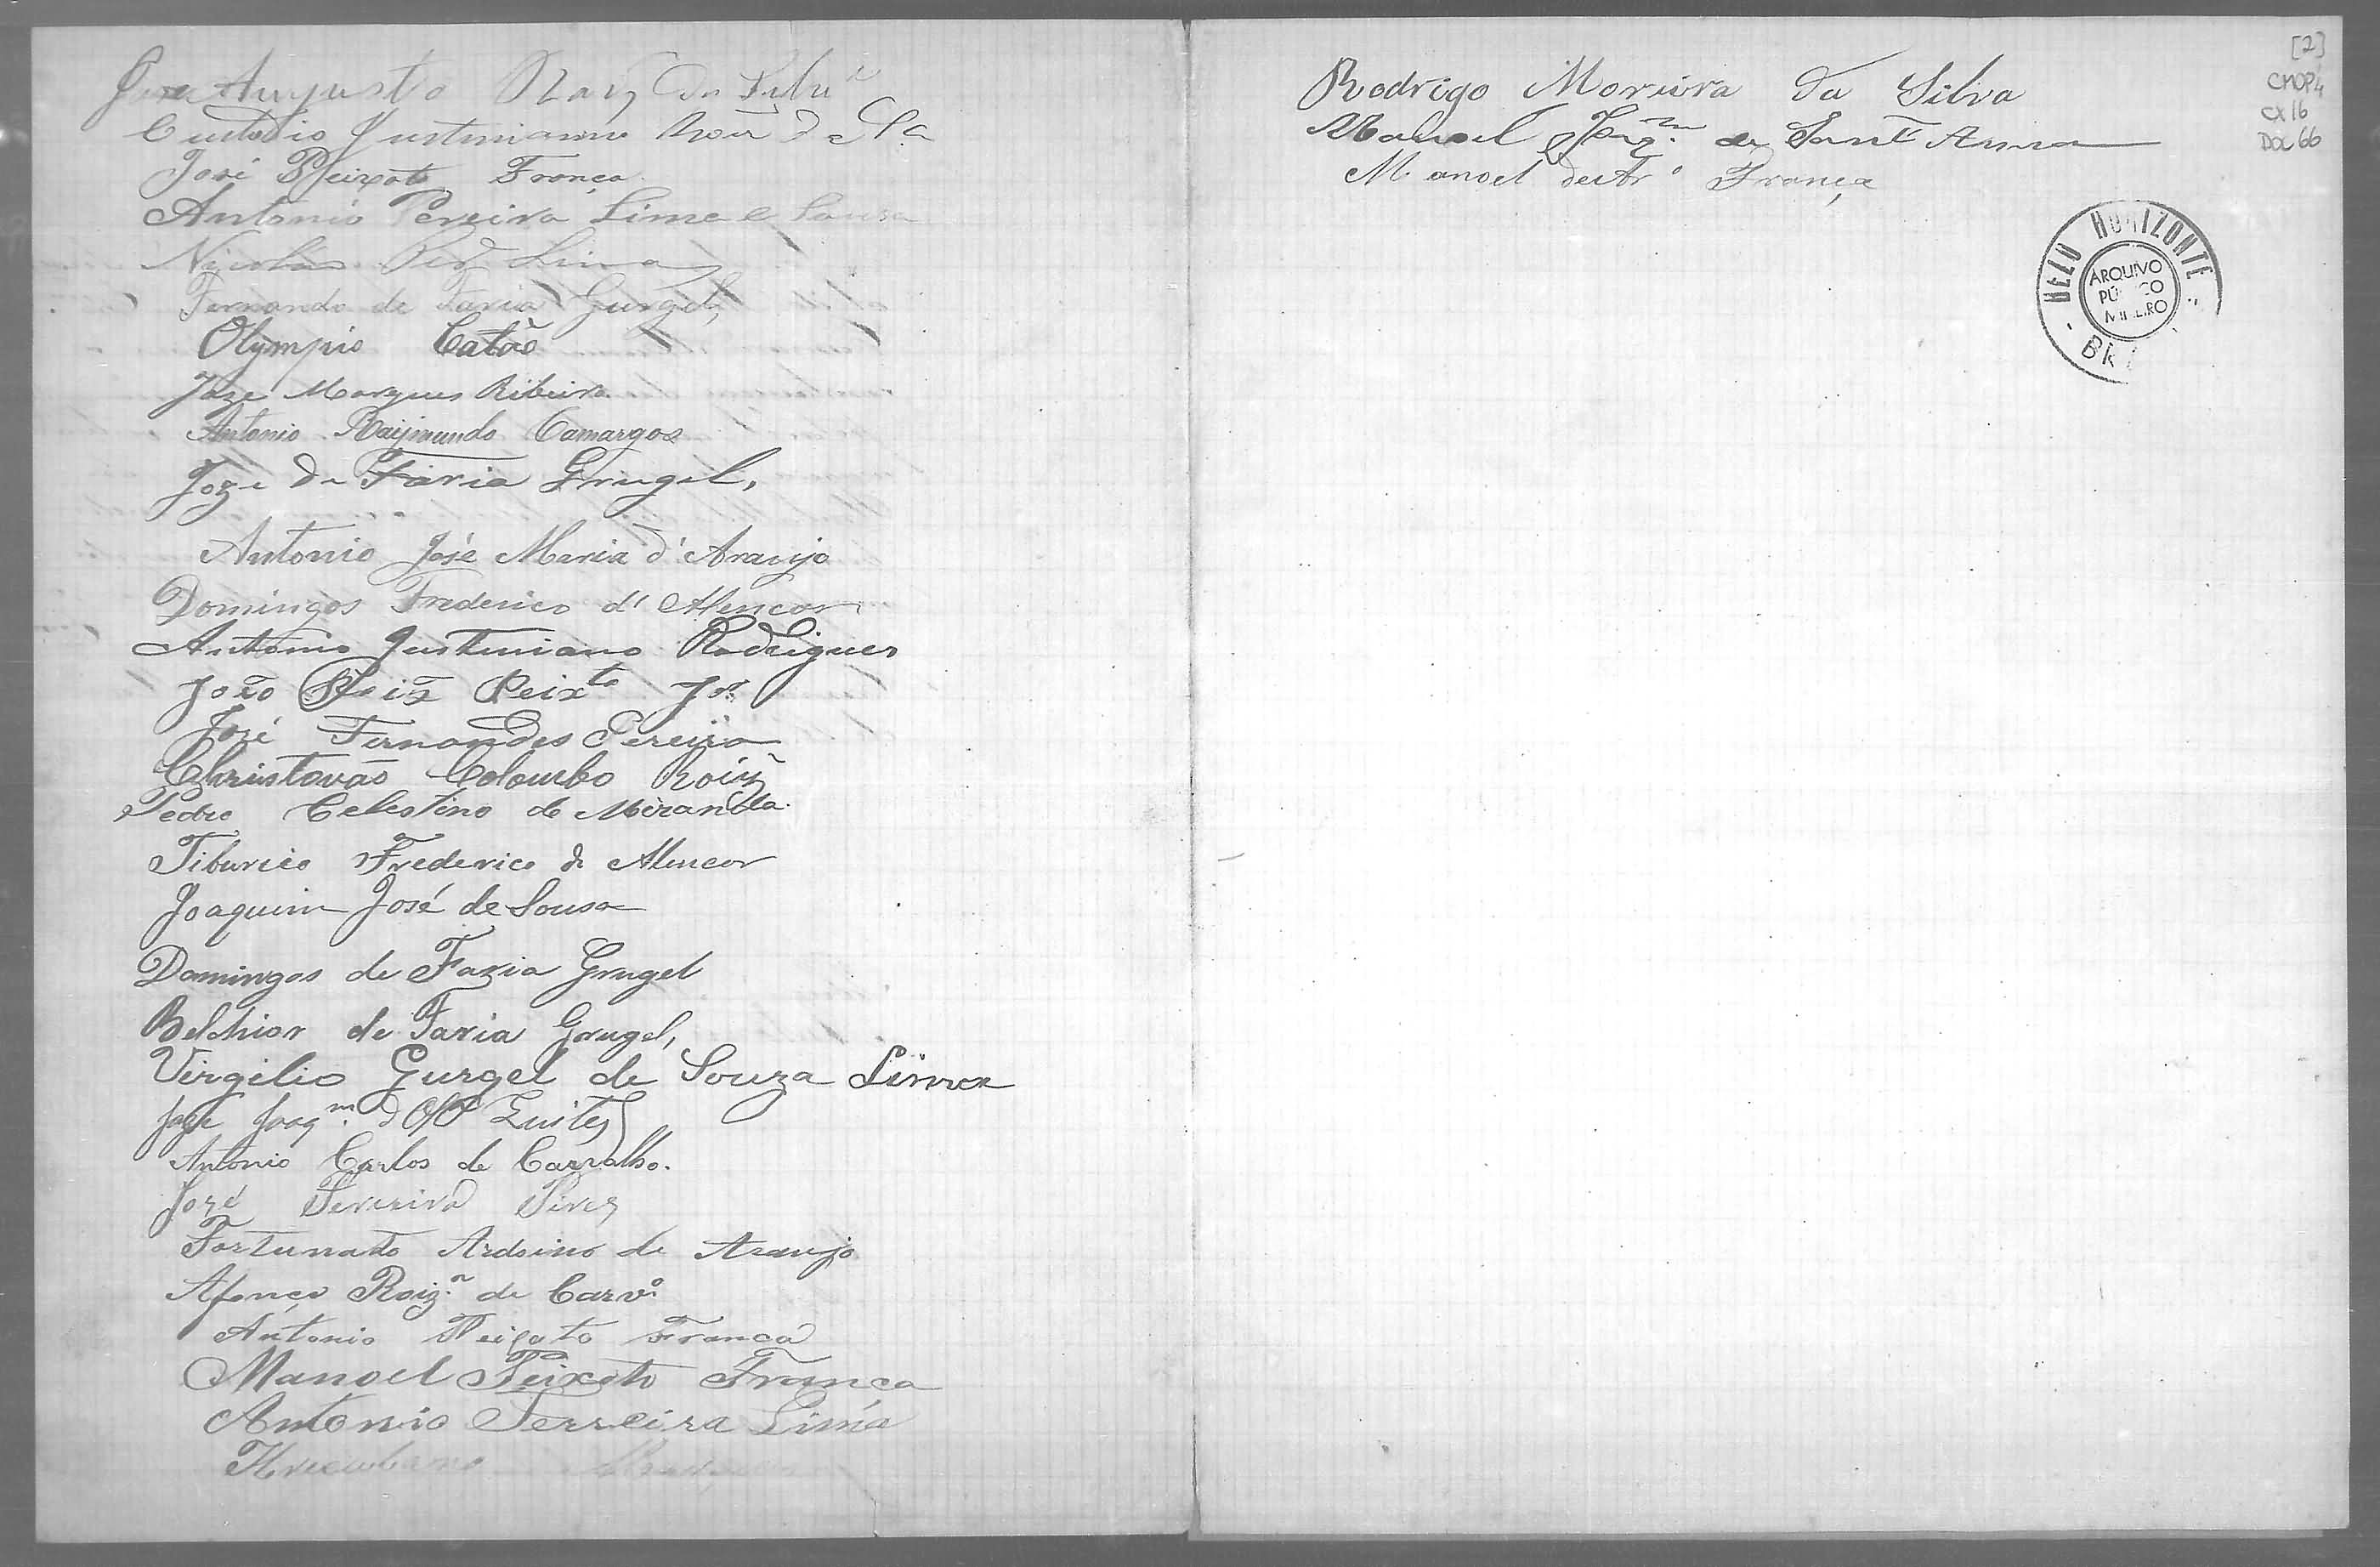 Augusto
Custodio Justiniano
José Peixoto França
Antonio Pereira Lima e Sousa
Lima
Fernando de Faria Gurgel,
Olympio Catão
Joze Marques Ribeiro
Antonio Raijmundo Camargos
Joze de Faria Grugel,
Antonio José Maria d'Araujo
Domingos Frederico d'Alencar
Antonio Justiniano Rodrigues
João Peixto Jor
José Fernandes Pereira
Christovão Colombo Roiz
Pedro Celestino de Miranda.
Tiburcio Frederico de Alencar
Joaquim José de Sousa
Domingos de Faria Grugel
Belchior de Faria Grugel,
Virgilio Gurgel de Souza Lima
Joze Joaqm. d
Antonio Carlos de Carvalho.
José Pires
Fortunato Ardoino de Araujo
Afonço Roiz. de Carvo
Antonio Peixoto França
Manoel Peixoto França
Antonio Ferreira Lima
Rodrigo Moreira da Silva
Manoel de Sant'Anna
Manoel França
[2]
CMOP4
CX16
DOC 66
BELO HORIZONTE
ARQUIVO
PÚBLICO
MINEIRO